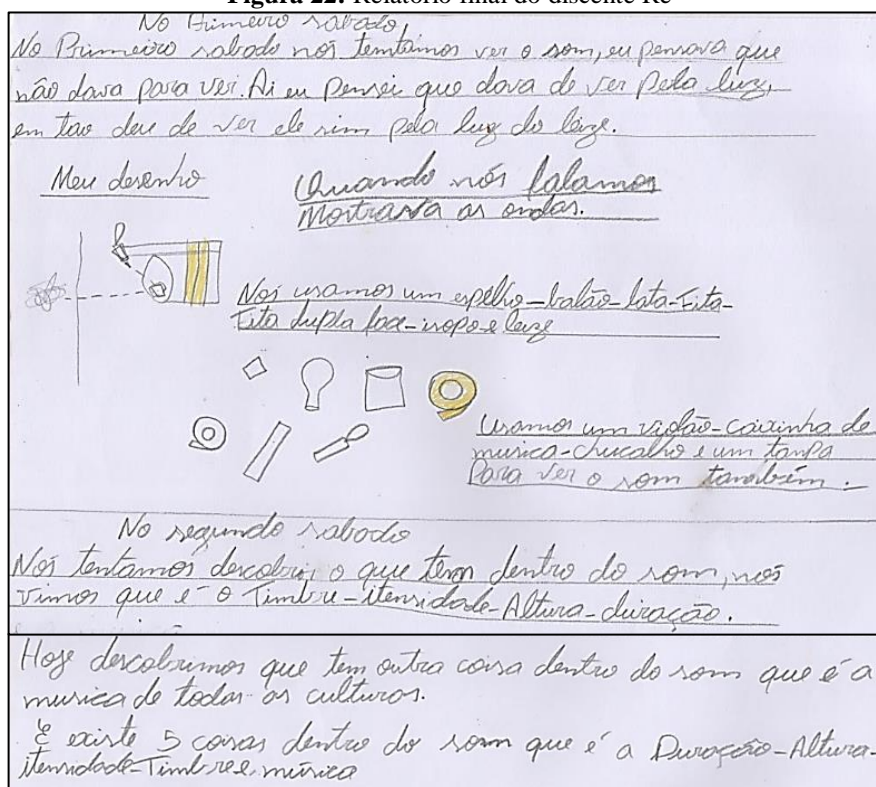 Figura 22: Relatório final do discente Re
No Primeiro sabado,
No Primeiro sabado nós temtamos ver o som, eu pensava que
não dava para ver. Ai eu Pensei que dava de ver Pela luz,
em tao deu de ver ele sim pela luz do laize.
Meu desenho
Quando nós falamos
Mostrava as ondas.
Nós usamos um espelho-balão-lata-Fita-
Fita dupla face-isopo-e laize
Usamos um violão-caixinha de
musica-chucalho e um tampa
Para ver o som também.
No segundo sabado
Nós tentamos descobrir o que tem dentro do som, nós
vimos que é o Timbre-itensidade-Altura-duração.
Hoje descobrimos que tem outra coisa dentro do som que é a
musica de todas as culturas.
E existe 5 coisas dentro do som que é a Duração-Altura-
itensidade-Timbre e música